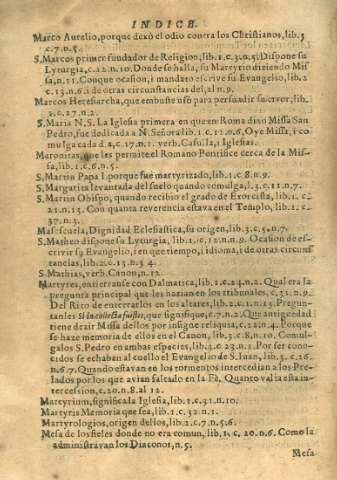 INDICE.
Marco Aurelio, porque dexò el odio contra los Christianos, lib. 3
c. 7. n. 5.
S. Marcos primer fundador de Religion, lib. 1. c. 3. n. 5. Dispone su
Lyturgia, c. 12. n. 10. Donde se halla, su Martyrio diziendo Mis
sa, n. 11. Conque ocasion, i mandato escrive su Evangelio, lib. 2
c. 13. n. 6. i de otras circunstancias del, al n. 9.
Marcos Heresiarcha, que embuste usò para persuadir su error, lib.
2. c. 27. n. 2.
S. Maria N. S. La Iglesia primera en que en Roma dixo Missa San
Pedro, fue dedicada a N. Señora lib. 1. c. 12. n. 6, Oye Missa, i co
mulgada d. a, c. 17. n. 1. verb. Casulla, i Iglesias.
Maronitas, que les permite el Romano Pontifice cerca de la Mis-
sa, lib. 1. c. 6. n. 5.
S. Martin Papa I. porque fue martyrizado, lib. 1. c. 8. n. 9.
S. Margarita levantada del suelo quando comulga, l. 3. c. 11. n. 7.
S. Martin Obispo, quando recibio el grado de Exorcista, lib. 1. c.
21. n. 13. Con quanta reverencia estava en el Templo, lib. 1. c.
37. n. 3.
Maestrescuela, Dignidad Eclesiastica, su origen, lib. 3. c. 5. n. 7.
S. Matheo dispone su Lyturgia, lib. 1. c. 12. n. 9. Ocasion de es-
crivir su Evangelio, i en que tiempo, i idioma, i de otras circuns
tancias, lib. 2. c. 13. n. 3. 4.
S. Mathias, verb. Canon, n. 12.
Martyres, entierranse con Dalmatica, lib. 1. c. 24. n. 2. Qual era la
pregunta principal que les hazian en los tribunales, c. 31. n. 9.
Del Rito de enterrarlos en los altares, lib. 2. c. 1. n. 13. Pregun-
tanles Si in collecta fuistis, que signifique, c. 7. n. 2. Que antiguedad
tiene dezir Missa dellos por insigne reliquia, c. 22. n. 4. Porque
se haze memoria de ellos en el Canon, lib. 3. c. 8. n. 10. Comul-
galos S. Pedro en ambas especies, lib. 1. c. 23. n. 1. Por ser cono-
cidos se echaban al cuello el Evangelio de S. Iuan, lib. 3. c. 26.
n. 6. 7. Quando estavan en los tormentos intercedian a los Pre-
lados por los que avian faltado en la Fè, Quanto valia esta in-
tercession, c. 20. n. 8. al 12.
Martyrium, significa la Iglesia, lib. 1. c. 31. n. 10.
Martyris Memoria que sea, lib. 1. c. 32. n. 1.
Martyrologios, origen dellos, lib. 2. c. 7. n. 5. 6.
Mesa de los fieles donde no era comun, lib. 1. c. 20. n. 6. Como la
administravan los Diaconos, n. 5.
Mesa